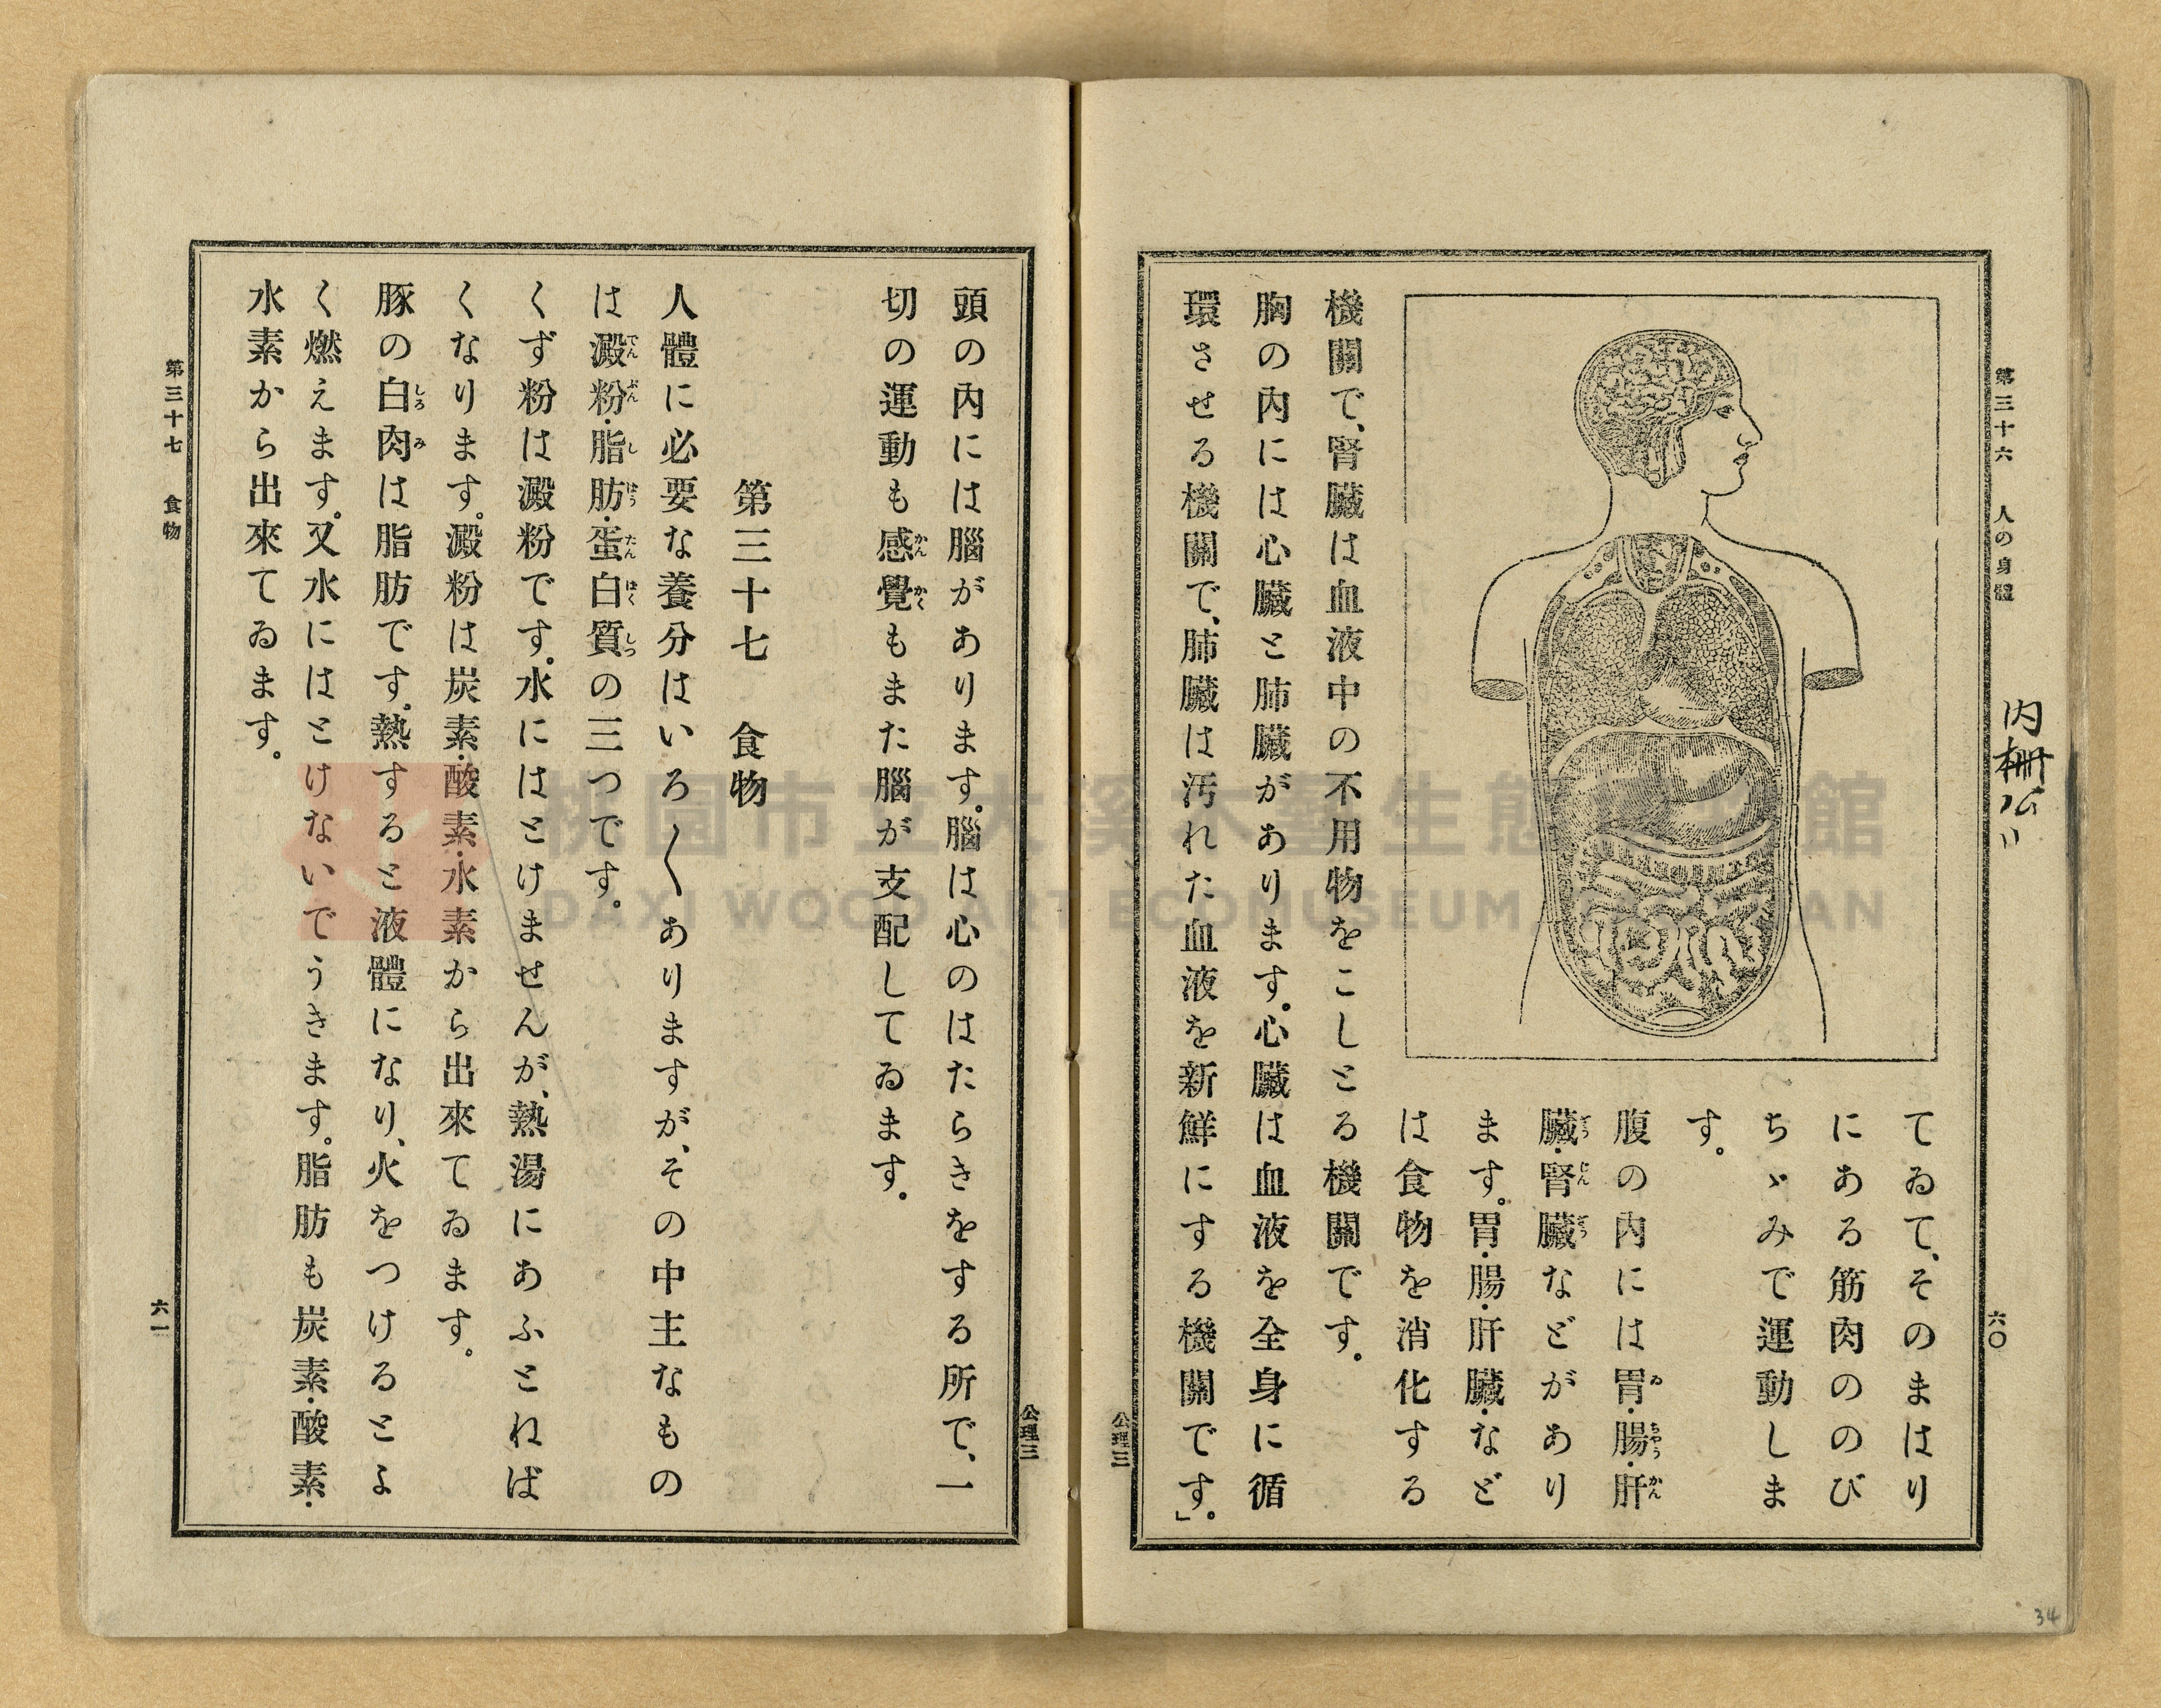 第三十六 人の身體
六〇
內柵公
てゐて、そのまはり
にある筋肉ののび
ちゞみで運動しま
す。
腹の內には胃・腸・肝
臟・腎臟などがあり
ます。胃・腸・肝臟・など
は食物を消化する
機關で、腎臟は血液中の不用物をこしとる機關です。
胸の內には心臟と肺臟があります。心臟は血液を全身に循
環させる機關で、肺臟は汚れた血液を新鮮にする機關です。」
公理三
34
公理三
頭の內には腦があります。腦は心のはたらきをする所で、一
切の運動も感覺もまた腦が支配してゐます。
第三十七 食物
人體に必要な養分はいろ〱ありますが、その中主なもの
は澱粉・脂肪・蛋白質の三つです。
くず粉は澱粉です。水にはとけませんが、熱湯にあふとねば
くなります。澱粉は炭素・酸素・水素から出來てゐます。
豚の白肉は脂肪です。熱すると液體になり、火をつけるとよ
く燃えます。又水にはとけないでうきます。脂肪も炭素・酸素・
水素から出來てゐます。
第三十七 食物
六一
桃園市立大溪木藝生態博物館
DAXI WOOD ART ECOMUSEUM, TAOYUAN